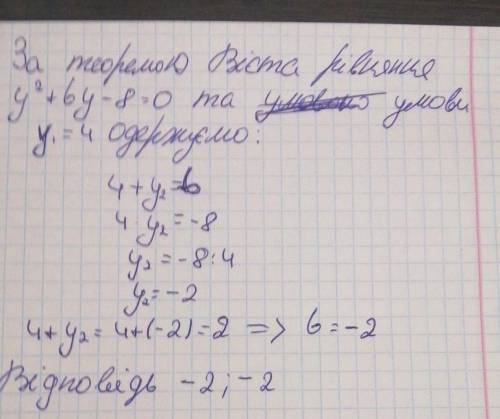 За теоремою Вієта рівняння
y² + 6y - 8 = 0 та умови
y₁ = 4 одержуємо:
4 + y₂ = b
4 · y₂ = -8
y₂ = -8 : 4
y₂ = -2
4 + y₂ = 4 + (-2) = 2 => b = -2
Відповідь -2 ; -2